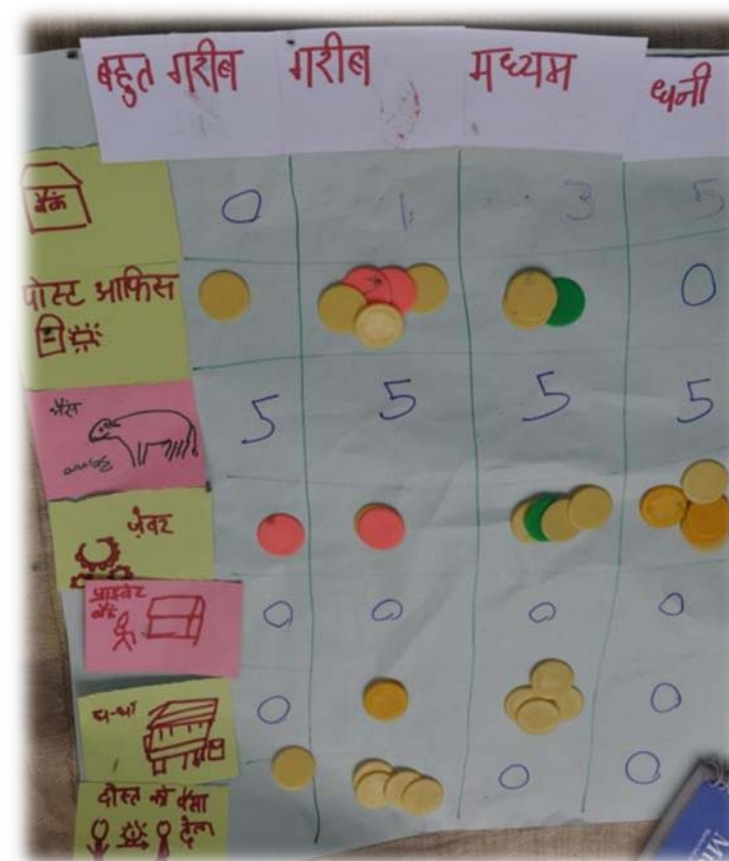 बहुत गरीब गरीब मध्यम धनी
बैंक 0 1 3 5
पोस्ट आफिस 0
भैंस 5 5 5 5
ज़ेवर
प्राइवेट 0 0 0 0
बैंक
धन्धा 0 0
0 0
दोस्त को पैसा
देना